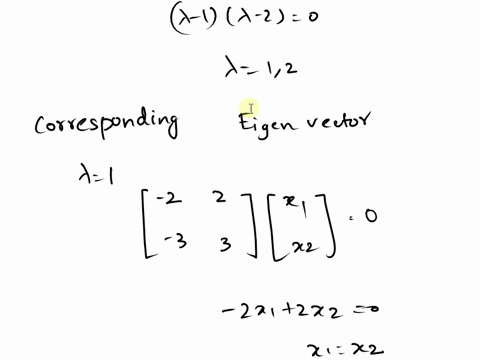 (λ-1) (λ-2) = 0
λ = 1, 2
Corresponding Eigen vector
λ=1
[-2 2] [x1] = 0
[-3 3] [x2]
-2x1 + 2x2 = 0
x1 = x2